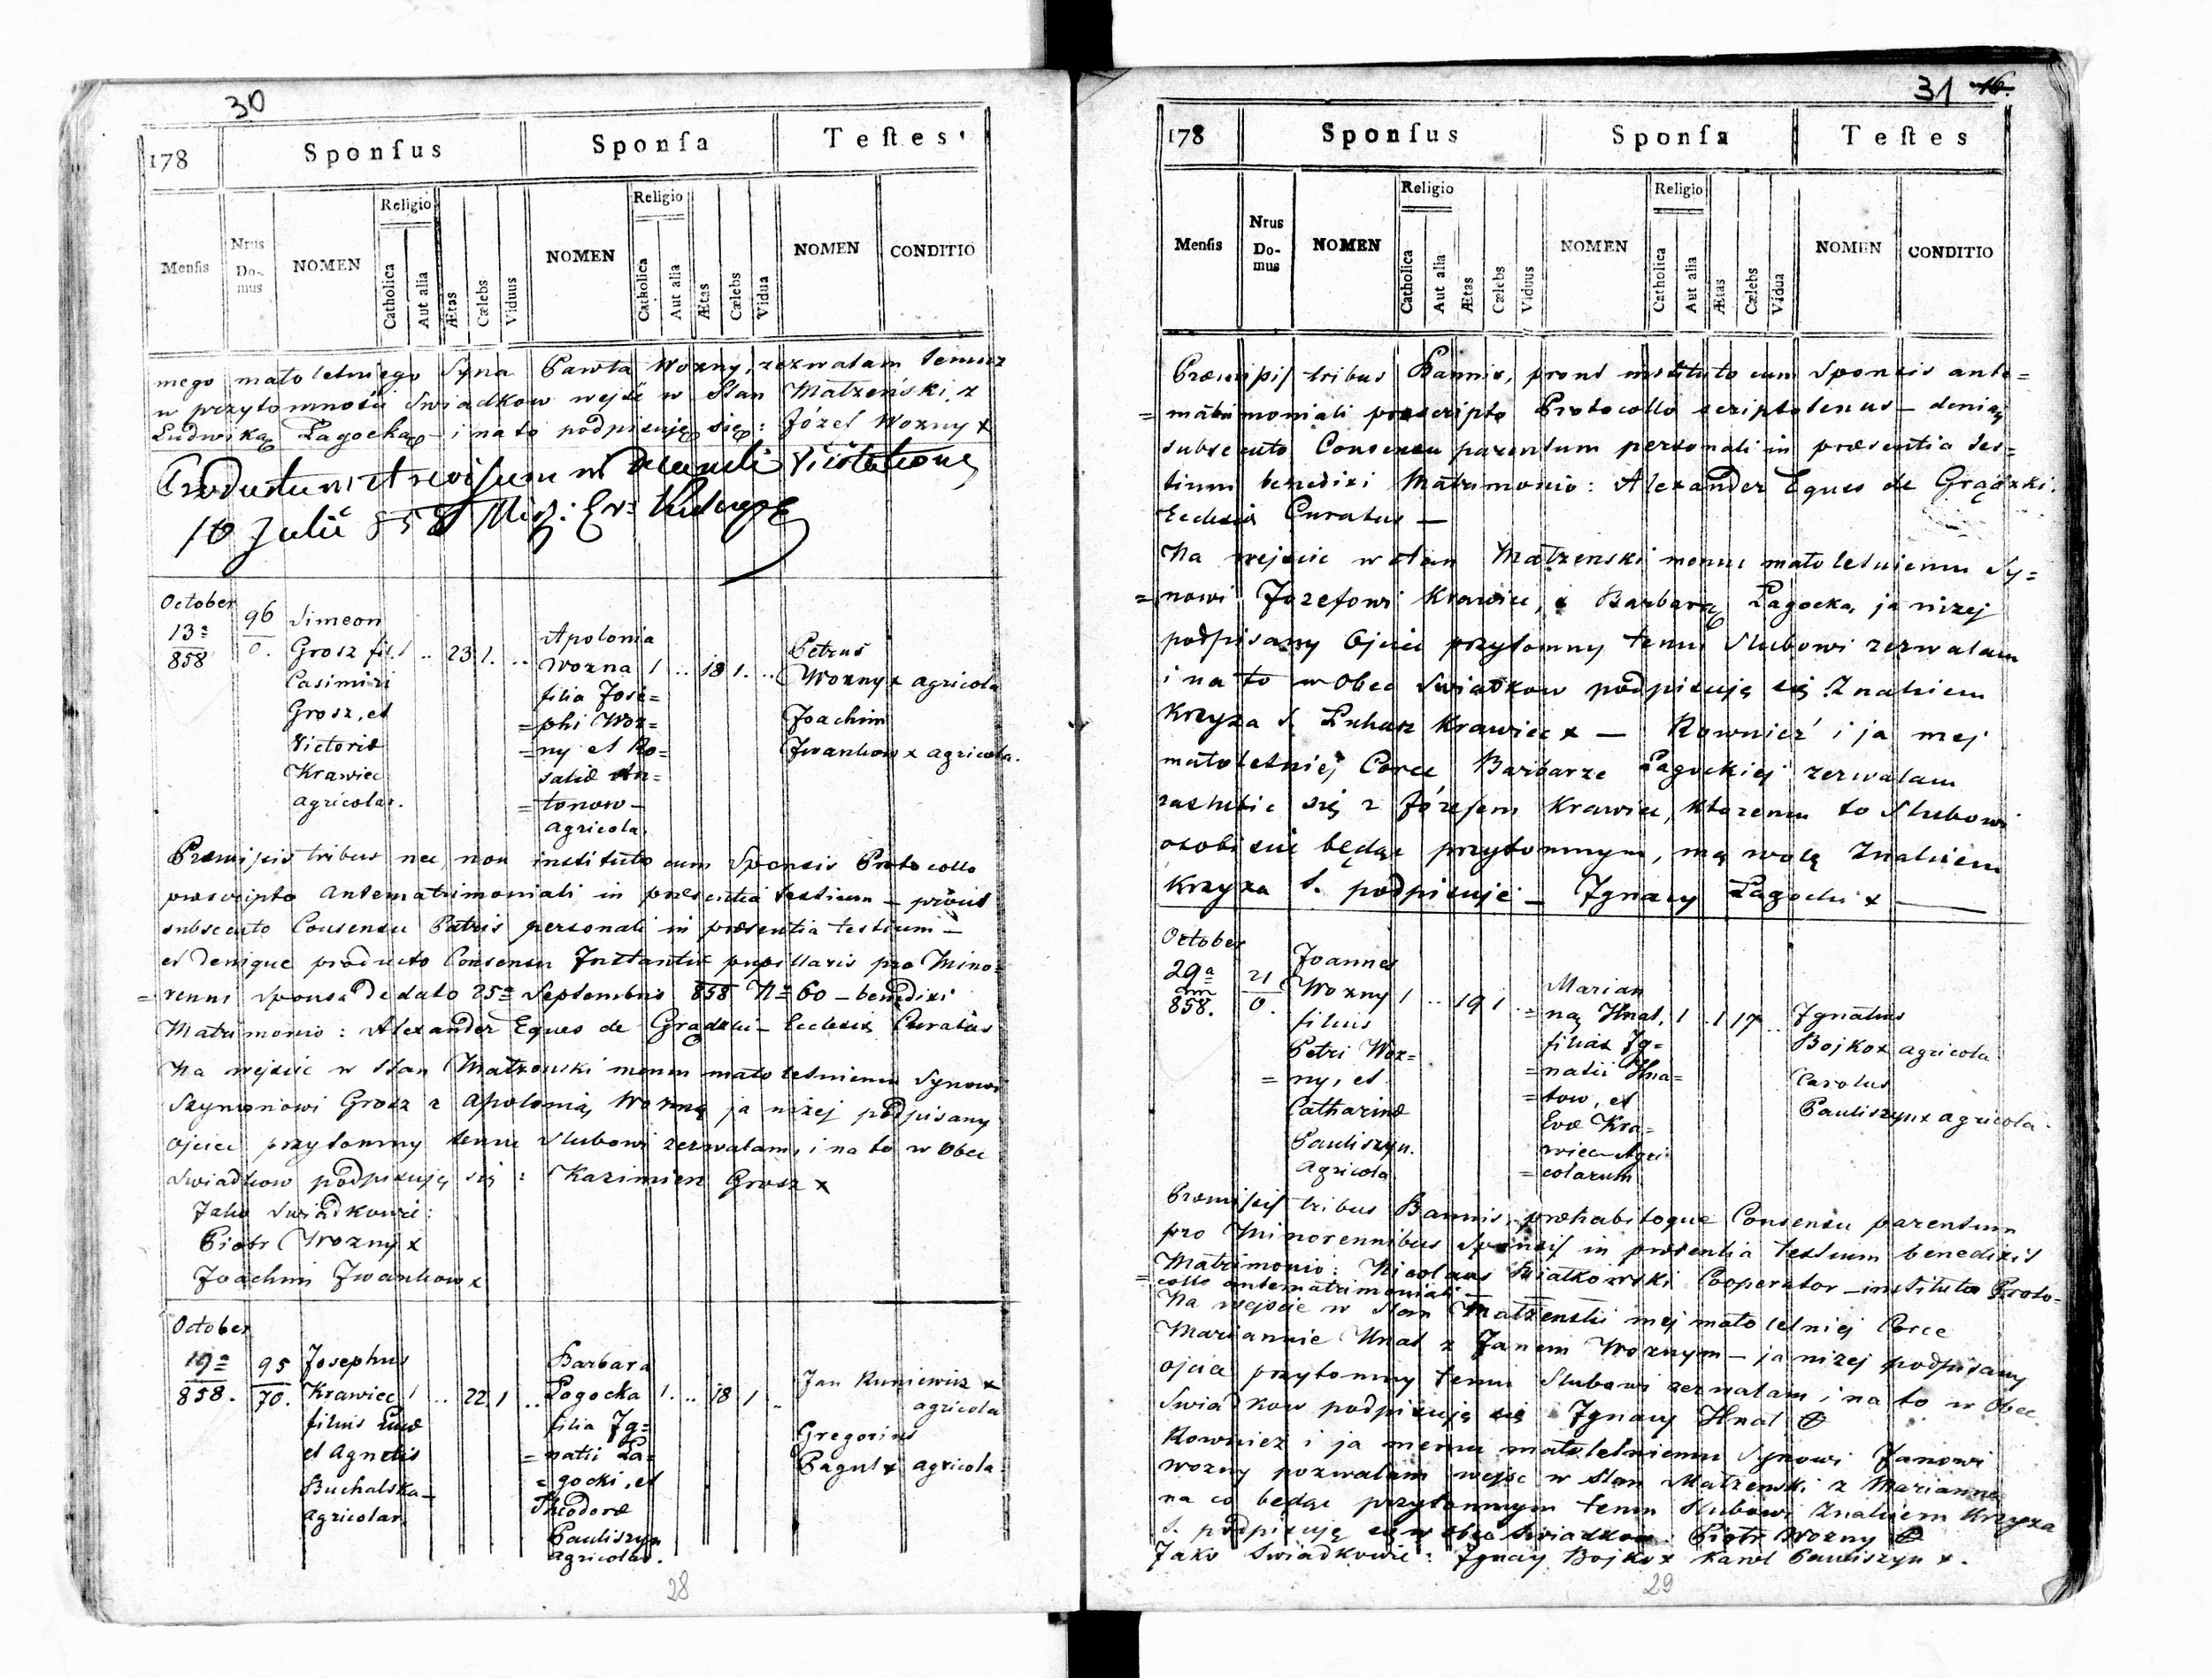 30
178 Sponſus Sponſa Teſtes
Menſis Nrus Do-mus NOMEN Religio Catholica Aut alia Ætas Cælebs Viduus NOMEN Religio Catholica Aut alia Ætas Cælebs Vidua NOMEN CONDITIO
mego małoletniego Syna Pawła Wozny, zezwalam temuż
w przytomności Swiadkow wejść w Stan Małżeński, z
Ludwiką Łagocką i na to podpisuję się: Józef Wozny x
Productum et revisum in decanali Visitatione
10 Julii 858
October
13ª
858
96
0.
Simeon
Grosz fil. 1 .. 23 1. ..
Casimiri
Grosz, et
Victoriæ
Krawiec
agricolar.
Apolonia
Wozna 1 .. 18 1. ..
filia Jose=
=phi Woz=
=ny et Ro=
saliæ An=
=tonow_
agricola.
Petrus
Wozny x agricola
Joachim
Jwankow x agricola.
Præmissis tribus nec non instituto cum Sponsis Protocollo
præscripto antematrimoniali in præsentia testium _ prout
subsecuto Consensu Patris personali in præsentia testium _
et denique producto Consensu Instantiæ pupillaris pro Mino=
=renni Sponsa de dato 25ª Septembris 858 Nº 60 _ benedixi
Matrimonio: Alexander Eques de Grądzki _ Ecclesiæ Curatus
Na wejście w Stan Małżenski memu małoletniemu Synowi
Szymonowi Grosz z Apolonią Wozną ja niżej podpisany
Ojciec przytomny temu Slubowi zezwalam, i na to w Obec
Swiadkow podpisuję się: Kazimierz Grosz x
Jako Swiadkowie:
Piotr Wozny x
Joachim Jwankow x
October
19ª
858.
95
70.
Josephus
Krawiec 1 .. 22 1 ..
filius Lucæ
et Agnetis
Buchalska _
agricolar.
Barbara
Łagocka 1. .. 18 1 ..
filia Jg=
=natii Ła=
=gocki, et
Theodoræ
Pauliszyn
agricolar.
Jan Kuniewicz x
agricola
Gregorius
Pagut x agricola
28
31 16.
178 Sponſus Sponſa Teſtes
Menſis Nrus Do-mus NOMEN Religio Catholica Aut alia Ætas Cælebs Viduus NOMEN Religio Catholica Aut alia Ætas Cælebs Vidua NOMEN CONDITIO
Præmissis tribus Bannis, prout instituto cum Sponsis ante=
=matrimoniali præscripto Protocollo scriptotenus _ deniq
subsecuto Consensu parentum personali in præsentia tes=
tium benedixi Matrimonio: Alexander Eques de Grądzki.
Ecclesiæ Curatus _
Na wejscie w stan Małzenski memu małoletniemu Sy=
=nowi Jozefowi Krawiec, z Barbarą Łagocką, ja nizej
podpisany Ojciec przytomny temu Slubowi zezwalam
i na to w Obec Swiadkow podpisuję się Znakiem
Krzyza S. Łukasz Krawiec x _ Rownież i ja mej
małoletniej Corce Barbarze Łagockiej zezwalam
zaslubic się z Józefem Krawiec, ktoremu to Slubowi
osobiscie będąc przytomnym, mą wolę Znakiem
Krzyza S. podpisuje _ Jgnacy Łagocki x
October
29ª
858.
21
0.
Joannes
Wozny 1 .. 19 1
filius
Petri Woz=
=ny, et
Catharinæ
Pauliszyn.
agricola
Marian
=na Hnat, 1 . 1 17 ..
filia Jg=
=natii Hna=
=tow, et
Evæ Kra=
wiec _ Agri
=colarum
Jgnatius
Bojko x agricola.
Carolus
Pauliszyn x agricola.
Præmissis tribus Bannis, præhabitoque Consensu parentum
pro Minorennibus Sponsis in præsentia testium benedixit
Matrimonio: Nicolaus Kwiatkowski Cooperator _ instituto Proto=
=collo antematrimoniali _
Na wejscie w Stan Małżenski mej małoletniej Corce
Mariannie Hnat z Janem Woznym _ ja nizej podpisany
ojciec przytomny temu Slubowi zezwalam i na to w Obec
Swiadkow podpisuję się Jgnacy Hnat
Rowniez i ja memu małoletniemu Synowi Janowi
Wozny pozwalam wejsc w Stan Małzenski z Marianną
na co będąc przytomnym temu Slubowi Znakiem Krzyza
S. podpisuję się w obec Swiadkow: Piotr Wozny
Jako Swiadkowie: Jgnacy Bojko x Karol Pauliszyn x.
29